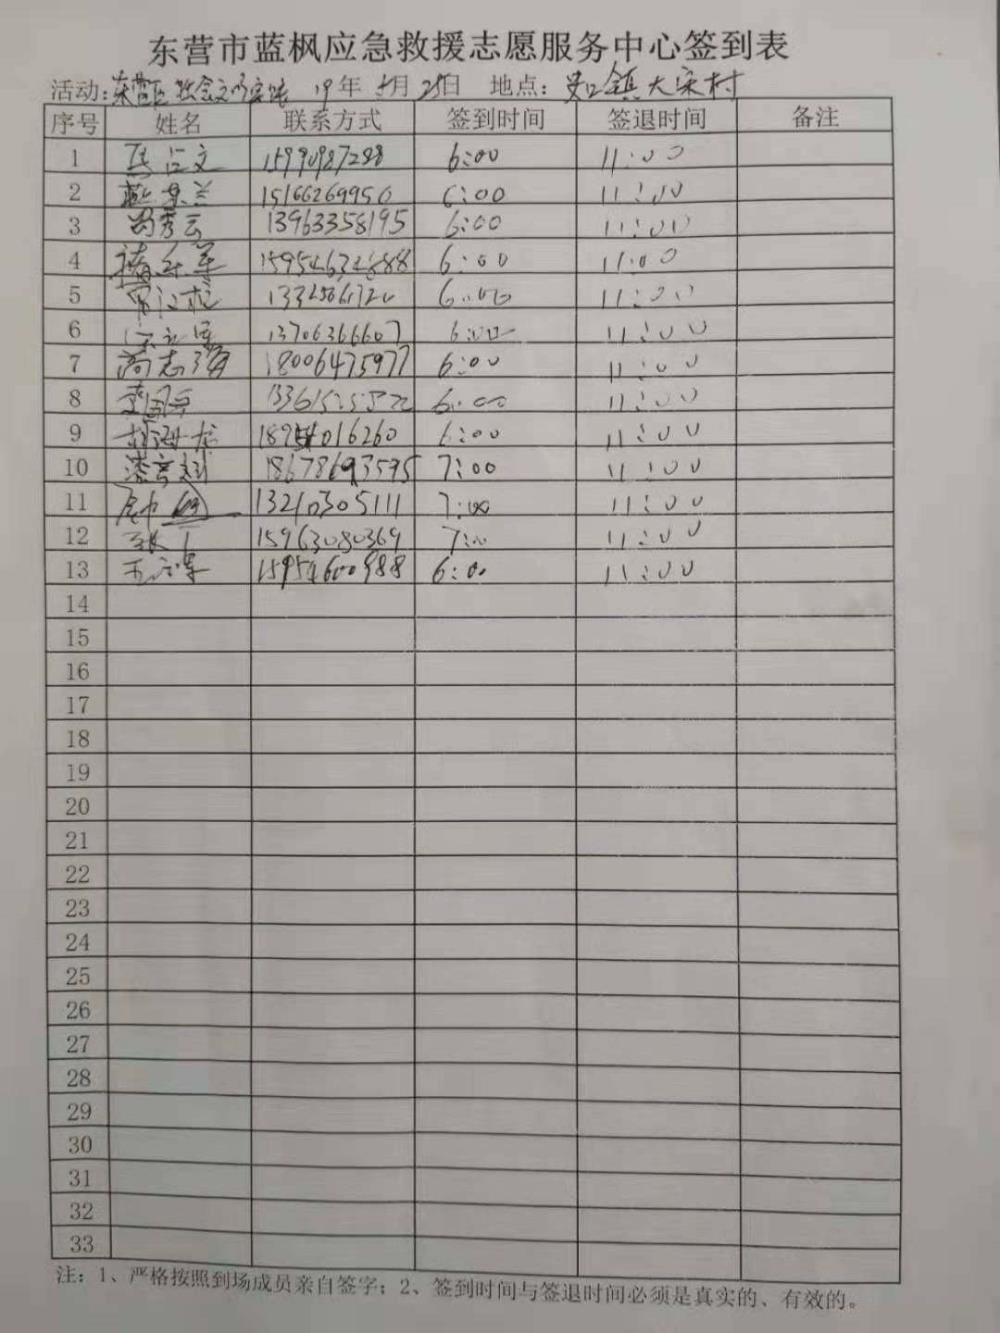 东营市蓝枫应急救援志愿服务中心签到表
活动：东营区 19年 月28日 地点：史口镇大宋村
序号 姓名 联系方式 签到时间 签退时间 备注
1 文 6:00 11:00
2 兰 15166269950 6:00 11:00
3 秀云 13963358195 6:00 11:00
4 15954634888 6:00 11:00
5 6:00 11:00
6 13706366607 6:00 11:00
7 尚志强 18006475977 6:00 11:00
8 6:00 11:00
9 海龙 6:00 11:00
10 18678693595 7:00 11:00
11 13210305111 7:00 11:00
12 15963080369 7:00 11:00
13 军 15954600988 6:00 11:00
14
15
16
17
18
19
20
21
22
23
24
25
26
27
28
29
30
31
32
33
注：1、严格按照到场成员亲自签字；2、签到时间与签退时间必须是真实的、有效的。